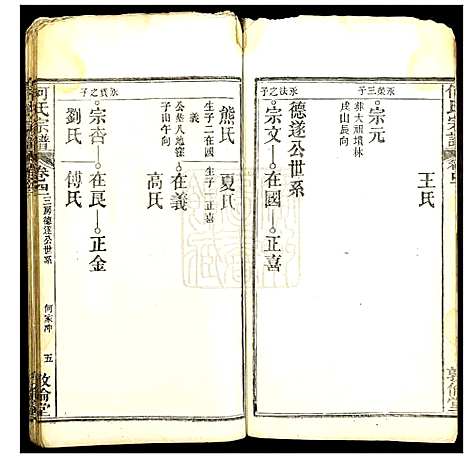 何氏宗譜
卷四
王氏
永榮三子
宗元
葬大頑墳林
戌山辰向
德遂公世系
永法之子
宗文—在國—正喜
熊氏 夏氏
生子二在國 生子一正喜
義
公葬八地窪
子山午向
在義
高氏
永貢之子
宗杏—在艮—正金
劉氏 傅氏
何氏宗譜
卷四
三房德遂公世系
何家冲
五
敦倫堂